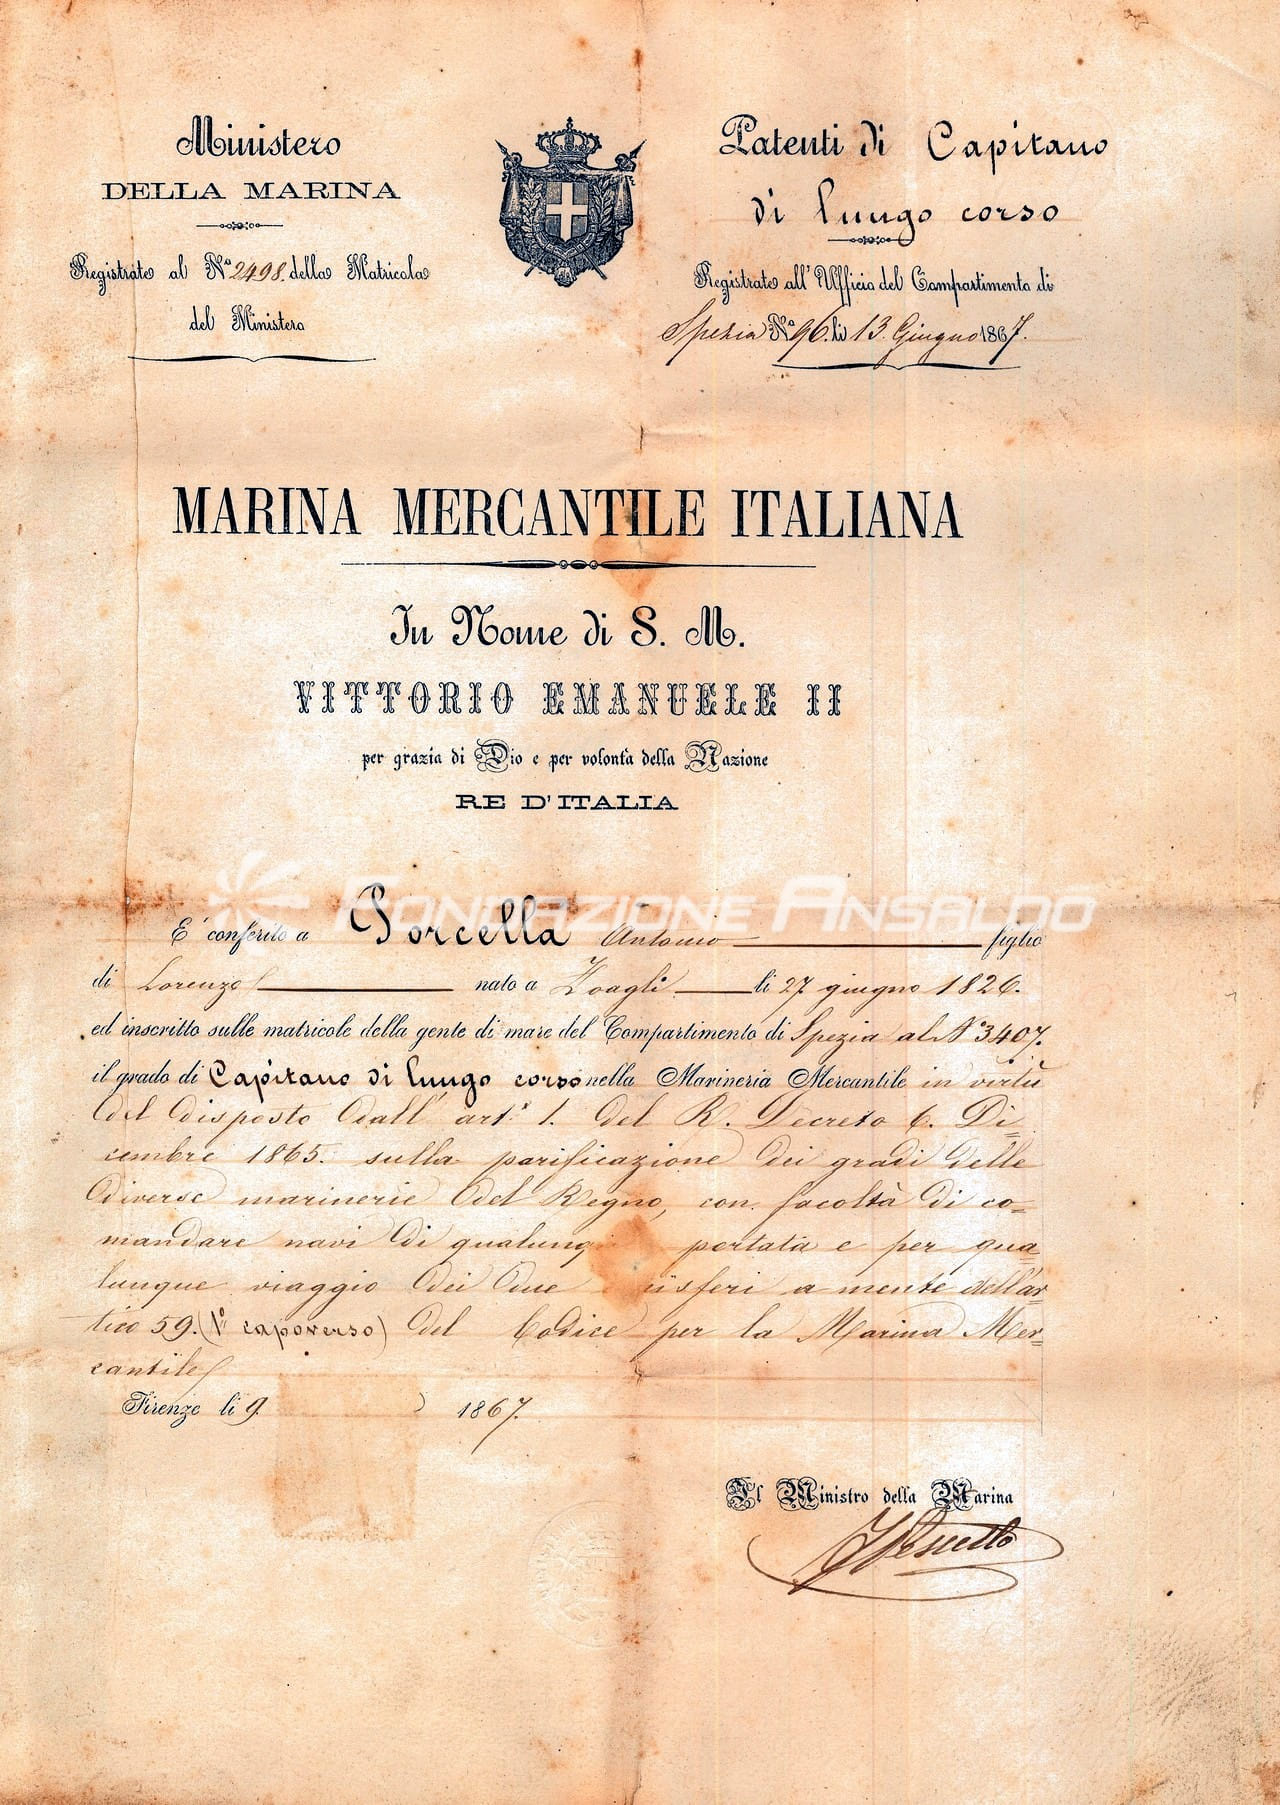 Ministero
DELLA MARINA
Registrate al N.º 2498. della Matricola
del Ministero
Patenti di Capitano
di lungo corso
Registrate all'Ufficio del Compartimento di
Spezia N.º 96. li 13. Giugno 1867.
MARINA MERCANTILE ITALIANA
In Nome di S. M.
VITTORIO EMANUELE II
per grazia di Dio e per volontà della Nazione
RE D'ITALIA
FONDAZIONE ANSALDO
E' conferito a Porcella Antonio figlio
di Lorenzo nato a Zoagli li 27 giugno 1826.
ed inscritto sulle matricole della gente di mare del Compartimento di Spezia al N.º 3407.
il grado di Capitano di lungo corso nella Marineria Mercantile in virtù
del disposto dall' art.º 1. del R. Decreto 6. Di=
cembre 1865. sulla parificazione dei gradi delle
diverse marinerie del Regno, con facoltà di co=
mandare navi di qualunq portata e per qua=
lunque viaggio dei due isferi a mente dell'ar=
tico 59. (1º capoverso) del Codice per la Marina Mer=
cantile
Firenze li 9. 1867.
Il Ministro della Marina